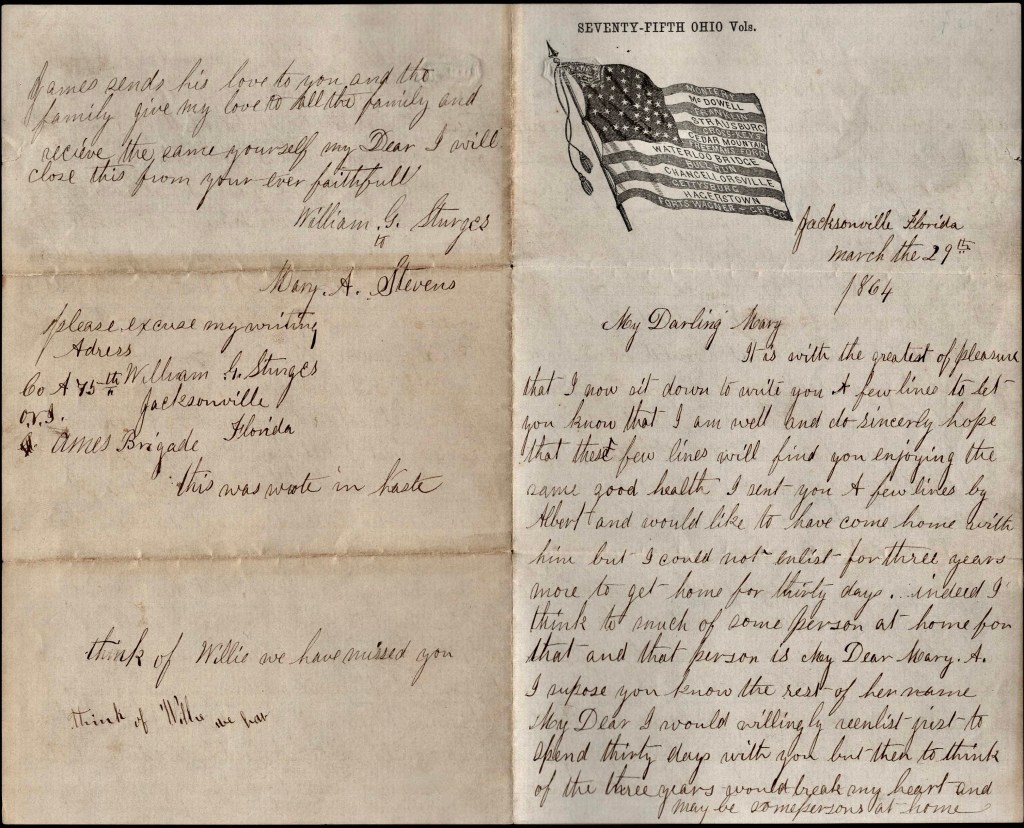 SEVENTY-FIFTH OHIO Vols.
MONTEREY
McDOWELL
FRANKLIN
STRAUSBURG
CROSS-KEYS
CEDAR MOUNTAIN
FREEMANS FORD
WATERLOO BRIDGE
BULL RUN
CHANCELLORSVILLE
GETTYSBURG
HAGERSTOWN
FORTS WAGNER - GREGG
Jacksonville Florida
March the 29th
1864
My Darling Mary
It is with the greatest of pleasure
that I now sit down to write you A few lines to let
you know that I am well and do sincerly hope
that these few lines will find you enjoying the
same good health I sent you A few lines by
Albert and would like to have come home with
him but I could not enlist for three years
more to get home for thirty days... indeed I
think to much of some person at home for
that and that person is My Dear Mary. A.
I supose you know the rest of her name
My Dear I would willingly reenlist just to
spend thirty days with you but then to think
of the three years would break my heart and
may be somepersons at home
James sends his love to you and the
family give my love to all the family and
recieve the same yourself my Dear I will
close this from your ever faithfull
William. G. Sturges
to
Mary. A. Stevens
please excuse my writing
Adress
William G. Sturges
Co A 75th
Jacksonville
O.V.I.
Florida
Ames Brigade
this was wrote in haste
think of Willie we have missed you
think of Willie we hav